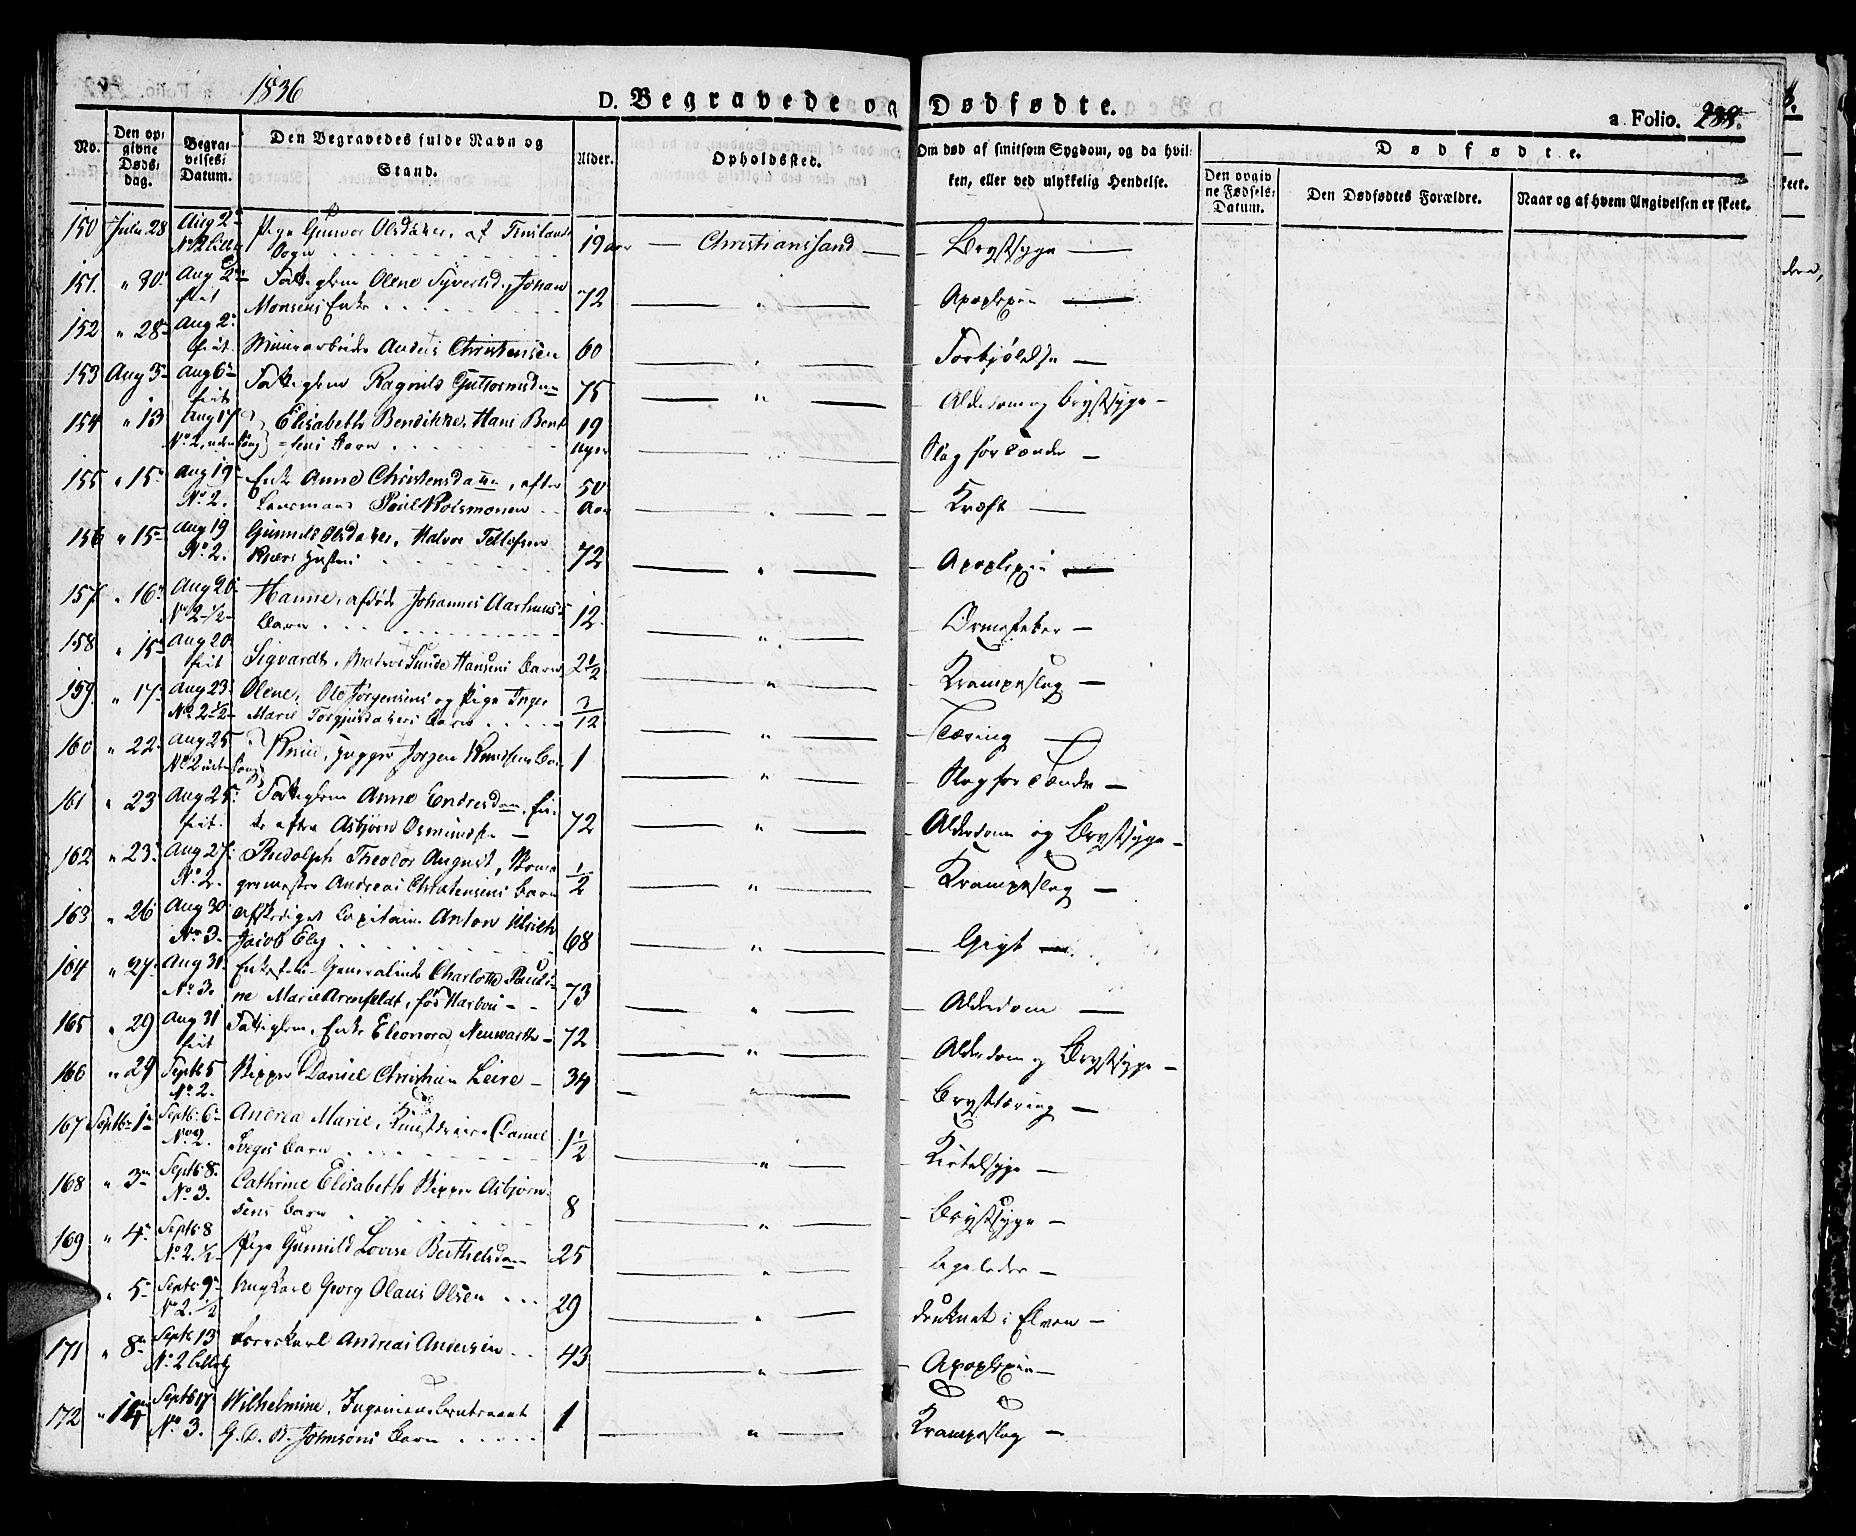 1836
D. Begravede og Dødfødte.
a Folio. 288.
No.
Den opgivne Døds-dag.
Begravelses-Datum.
Den Begravedes fulde Navn og Stand.
Alder.
Opholdssted.
Om død af smitsom Sygdom, og da hvilken, eller ved ulykkelig Hendelse.
Dødfødte.
Den opgivne Fødsels-Datum.
Den Dødfødtes Forældre.
Naar og af hvem Angivelsen er skeet.
150 Julii 28 Aug 2 Pige Gunvor Olsdatter, af — Christianssand — Brystsyge —
Sogn 19 aar
151. " 30. Aug 2 Fattiglem Olene Syvertsd., Johan
Monsens Enke 72 — " — Apoplexie —
152 " 28 Aug 2 fri
Muurarbeider Anders Christensen 60 " Forkjølelse —
153 Aug 3 Aug 6 Fattiglem Ragnild Guttormsd 75 — " — Alderdom og Brystsyge —
154 " 13 Aug 17 Elisabeth Bendikke, Hans Bent
No 2, uden Sang sens Barn 19 uger — " — Slag for Tænder —
155 " 15 Aug 19 Enke Anne Christensda, efter
No. 2. Lensmand Paul Rolsmonen 50 Aar — " — Kræft —
156 " 15 Aug 19 Gunnild Olsdatter, Halvor Tellefsen
No. 2. Kjærs Hustru 72 — " — Apoplexie —
157 " 16 Aug 20 Hanne, afdøde Johannes Aarhuus
No 2 1/2 Barn 12 — " — Ormefeber —
158 " 15 Aug 20 Sigvardt, Hansens Barn 2 1/2 — " — Krampeslag —
159 " 17 Aug 23 Olene, Ole Jørgensens og Pige Inger
No. 2 1/2 Marie Torgjusdatters Barn 3/12 — " — Tæring —
160 " 22 Aug 25 Knud, Jørgen Knudsens Barn 1 — " — Slag for Tænder —
No. 2 uden Sang
161 " 23 Aug 25 Fattiglem Anne Endresda, En-
ke efter Asbjørn Osmunds — 72 — " — Alderdom og Brystsyge —
162 " 23 Aug 27 Rudolph Theodor August, Skoma
No. 2. germester Andreas Christensens Barn 1/2 — " — Krampeslag —
163 " 26 Aug 30 Afskediget Capitain Anton Ulrich
No. 3. Jacob Ely 68 — " — Gigt —
164 " 27 Aug 31 Enkefru Generalinde Charlotte Pauli-
No. 3. ne Marie Arenfeldt, fød Harbou 73 — " — Alderdom —
165 " 29 Aug 31 Fattiglem, Enke Eleonora Neuwarth 72 — " — Alderdom og Brystsyge —
166 " 29 Septb 5 Ripper Daniel Christian Leire — 34 — " — Brysttæring —
No. 2.
167 Septbr 1 Septb. 6 Andrea Marie, Daniel
No. 2. Barn 1 1/2 — " — Kirtelsyge —
168 " 3 Septb 8. Cathrine Elisabeth Ripper Asbjørn
No. 3. sens Barn 8 — " — Brystsyge —
169 " 4 Septb 8 Pige Gunnild Lovise Berthelsda 25 — " —
No. 2. 1/2
" 5 Septb 9 Ungkarl Georg Olaus Olsen 29 — " — druknet i Elven —
No. 2. 1/2
171 " 8 Septb 13 Andreas Andersen 43 — " — Apoplexie —
No. 2
172 " 14 Septb 17 Wilhelmine, Ingenieur Leutenant
No 3. G. D. B. Johnsons Barn 1 — " — Krampeslag —